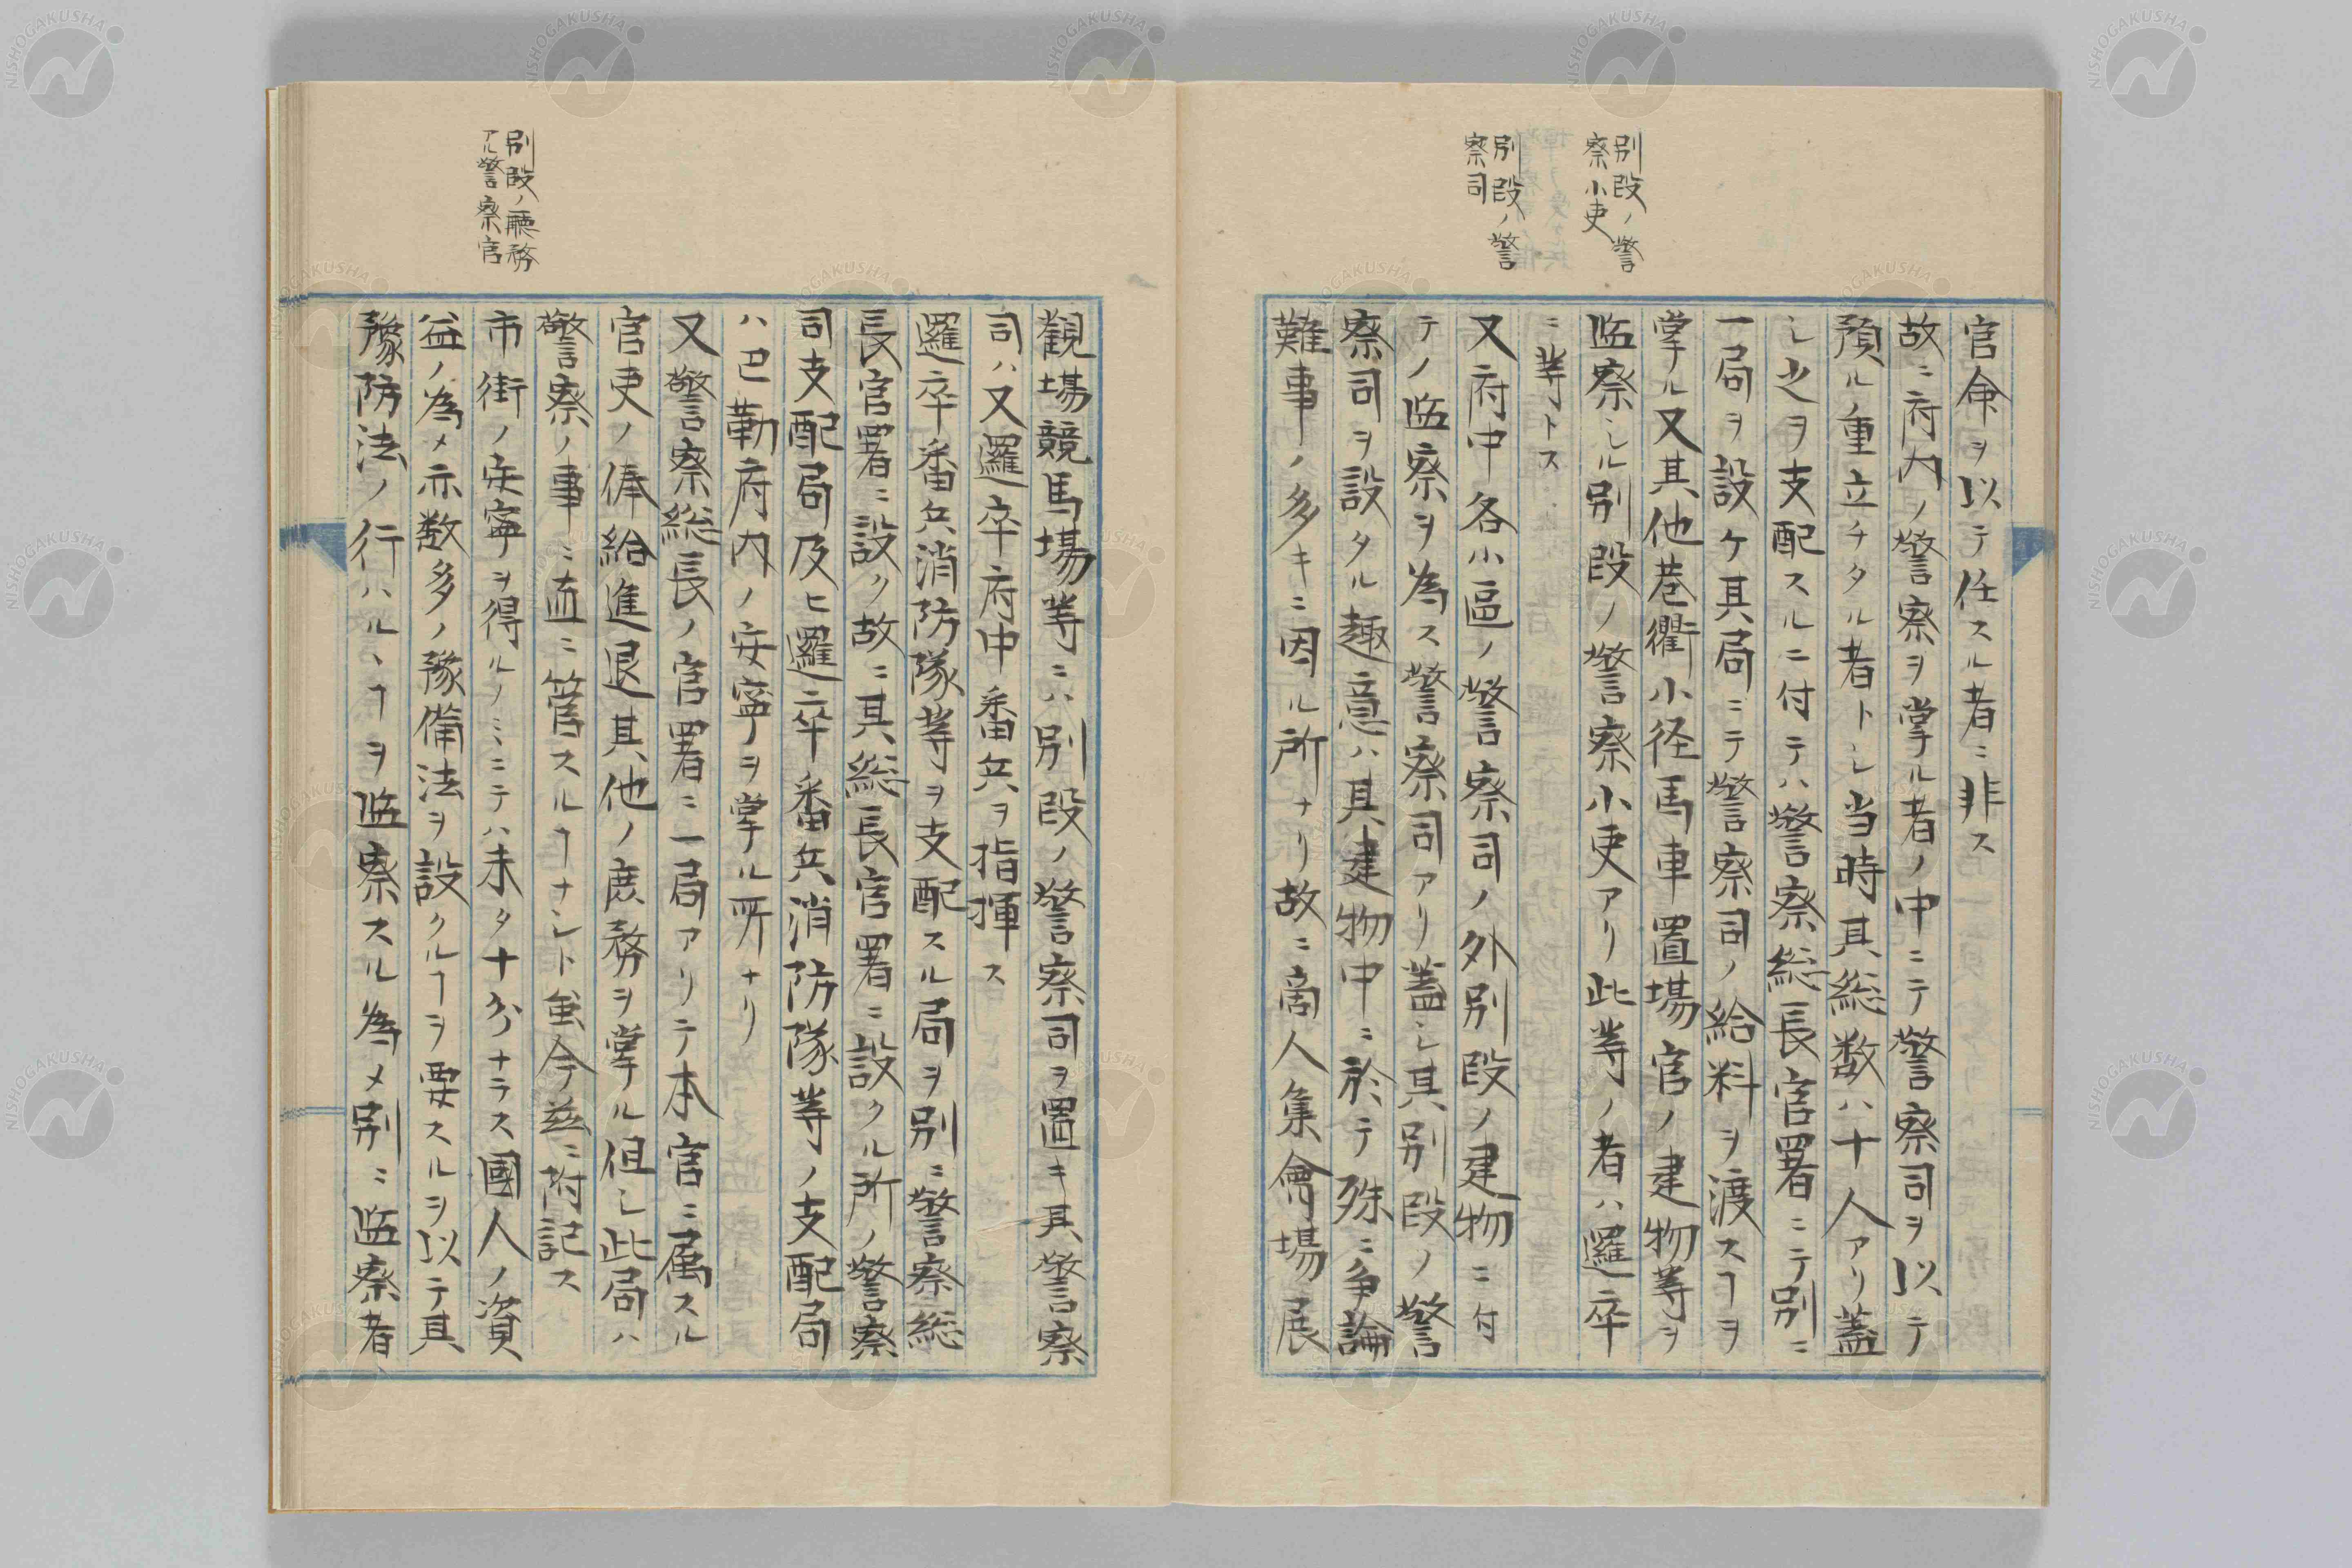 別段ノ警
察小吏
別段ノ警
察司
官命ヲ以テ任スル者ニ非ス
故ニ府内ノ警察ヲ掌ル者ノ中ニテ警察司ヲ以テ
預ル重立チタル者トシ当時其総数ハ十人アリ蓋
シ之ヲ支配スルニ付テハ警察総長官署ニテ別ニ
一局ヲ設ケ其局ニテ警察司ノ給料ヲ渡スヿヲ
掌ル又其他巷衢小径馬車置場官ノ建物等ヲ
監察シル別段ノ警察小吏アリ此等ノ者ハ邏卒
ニ等トス
又府中各小區ノ警察司ノ外別段ノ建物ニ付
テノ監察ヲ為ス警察司アリ蓋シ其別段ノ警
察司ヲ設タル趣意ハ其建物中ニ於テ殊ニ争論
難事ノ多キニ因ル所ナリ故ニ商人集會場展
別段ノ廳務
アル警察官
觀場競馬場等ニハ別段ノ警察司ヲ置キ其警察
司ハ又邏卒府中番兵ヲ指揮ス
邏卒番兵消防隊等ヲ支配スル局ヲ別ニ警察総
長官署ニ設ク故ニ其総長官署ニ設クル所ノ警察
司支配局及ヒ邏卒番兵消防隊等ノ支配局
ハ巴勒府内ノ安寧ヲ掌ル所ナリ
又警察総長ノ官署ニ一局アリテ本官ニ属スル
官吏ノ俸給進退其他ノ庶務ヲ掌ル但シ此局ハ
警察ノ事ニ直ニ管スルヿナシト虽今茲ニ附記ス
市街ノ安寧ヲ得ルノミニテハ未タ十分ナラス國人ノ資
益ノ為メ亦数多ノ豫備法ヲ設クルヿヲ要スルヲ以テ其
豫防法ノ行ハルヽヿヲ監察スル為メ別ニ監察者